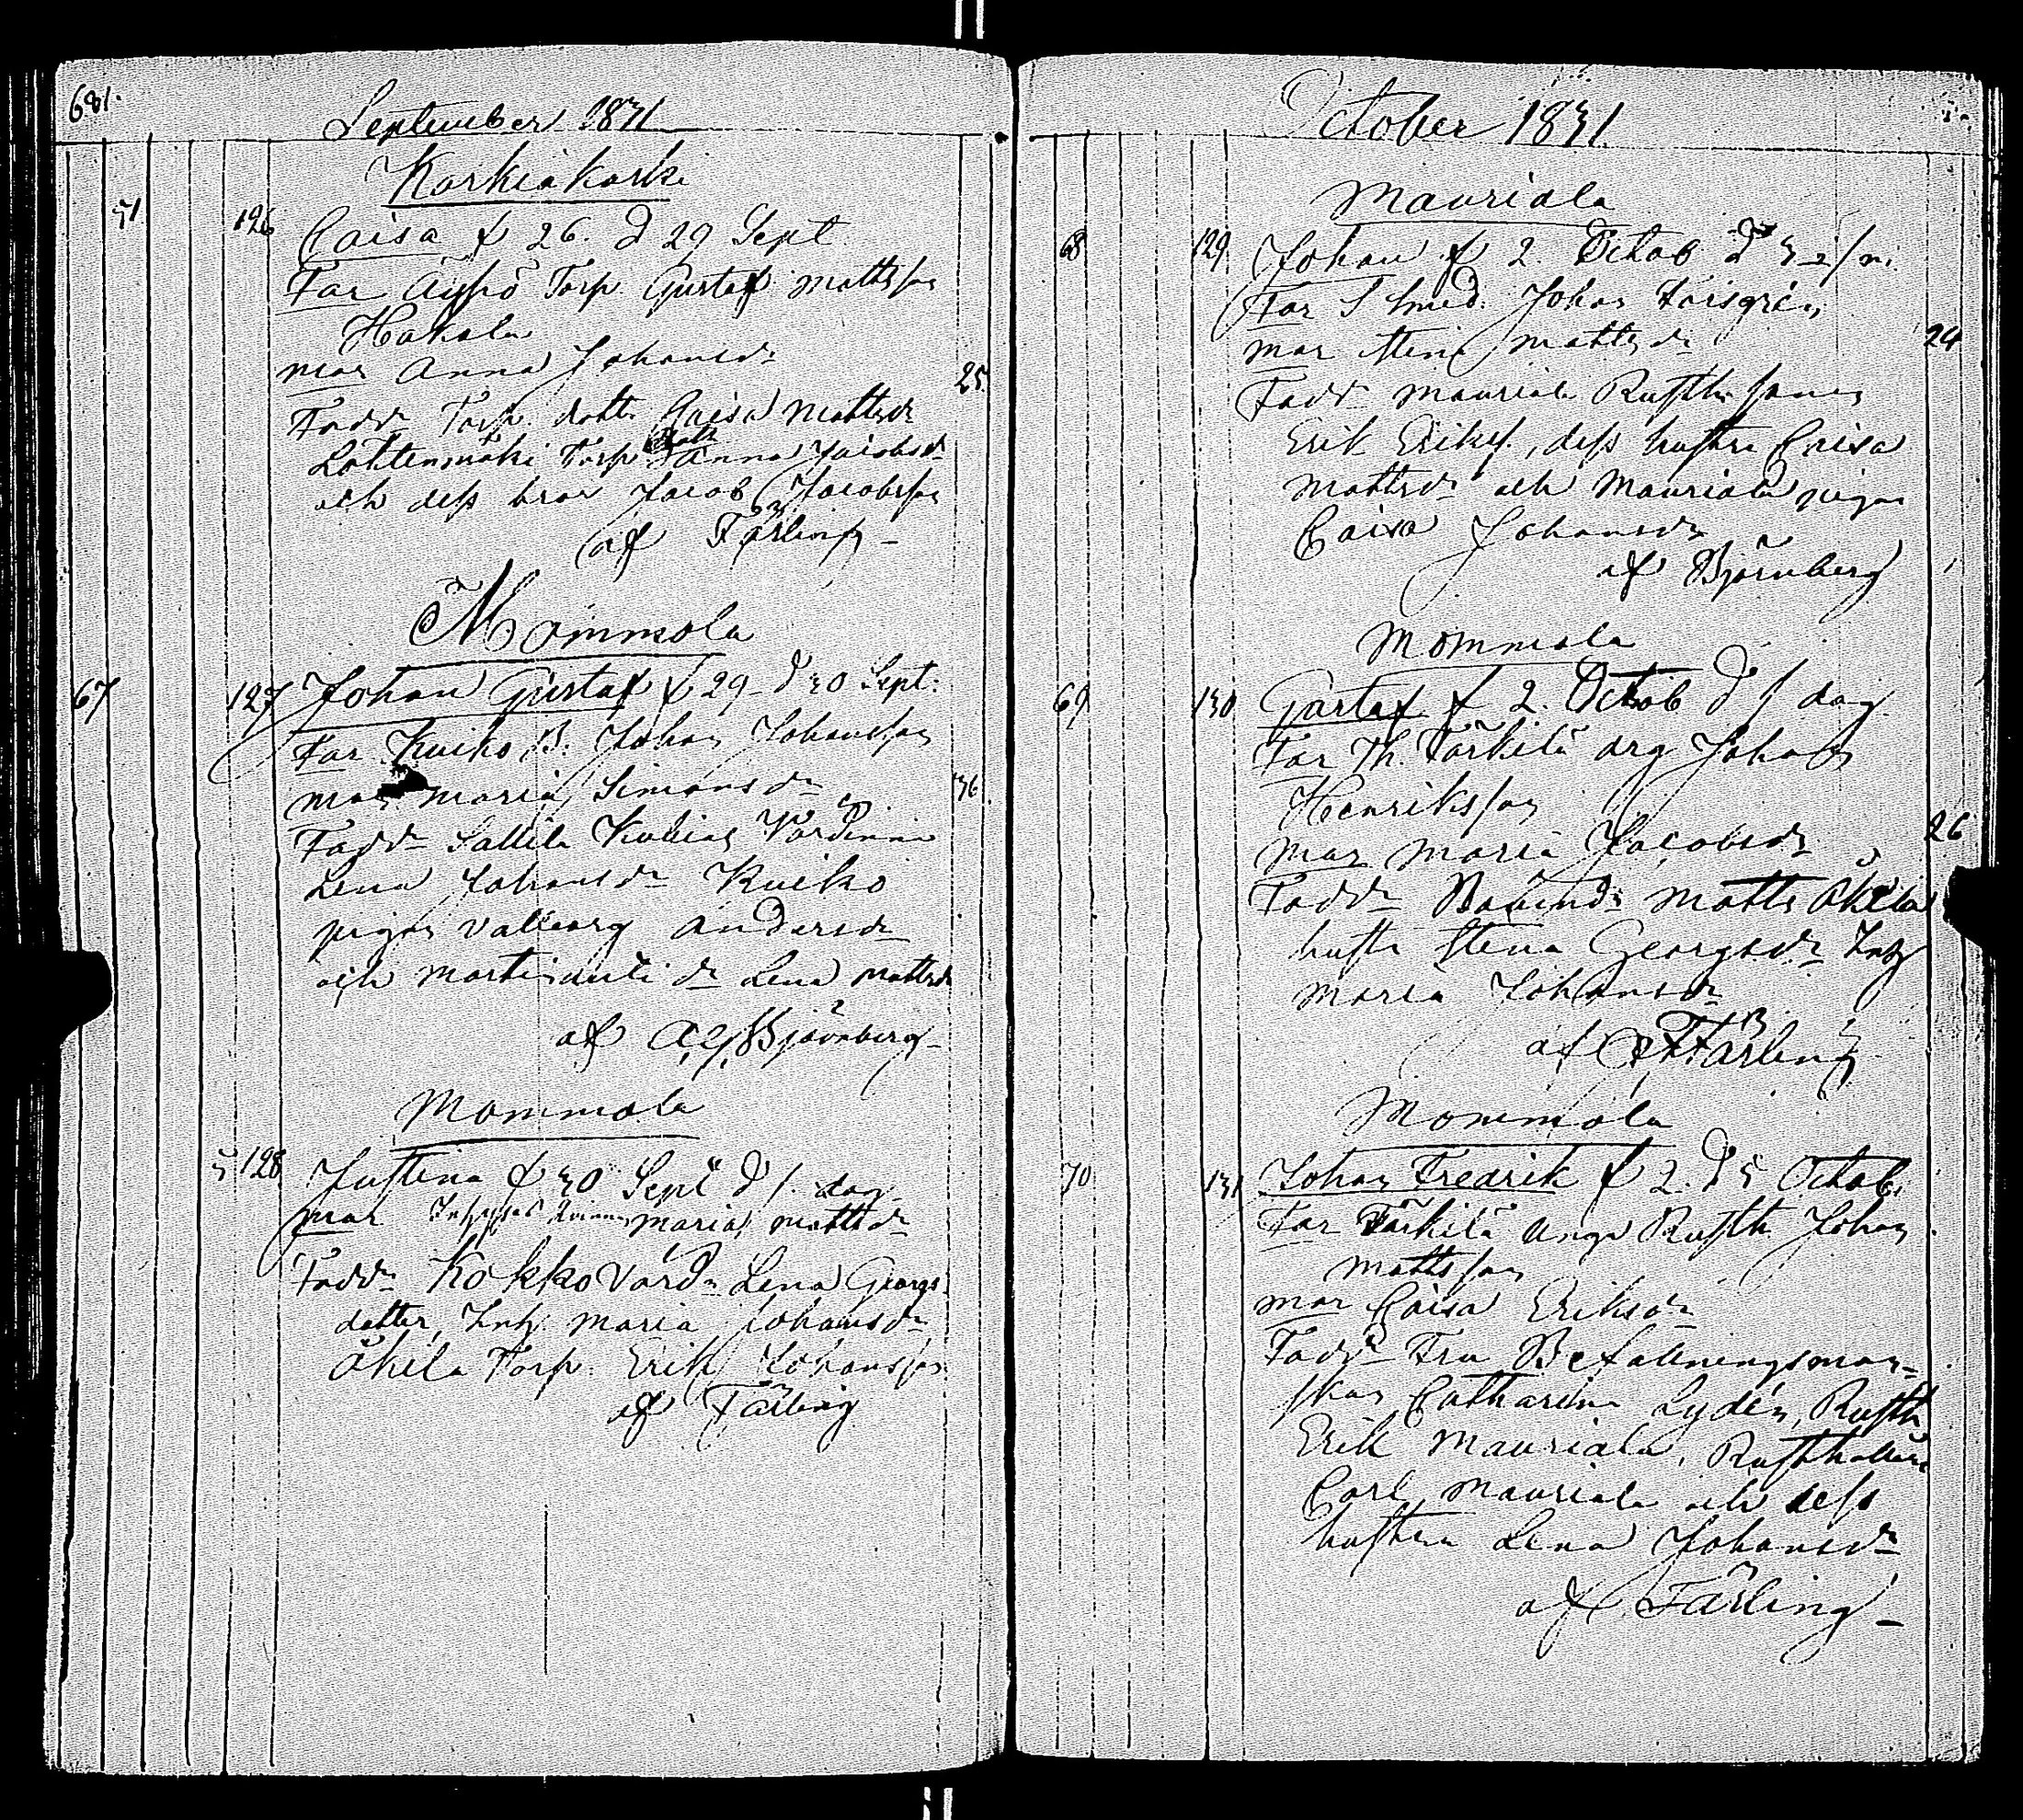 681.
September 1831
Karkiakoski
51 126 Caisa f 26. d 29 Sept
Far Äyhö Torp. Gustaf Mattsson
Hakala
mor Anna Johansdr
25.
Faddr Torp. dottr Caisa Mattsdr
Torp dottr Anna Jacobsdr
och dess bror Jacob Jacobsson
af Färling
Mommola
67 127 Johan Gustaf f 29 d 30 Sept.
Far Kuiko B. Johan Johansson
mor Maria Simonsdr 36
Faddr Sallila Värdinna
Lena Johansdr Kuiko
pigan Valborg Andersdr
och dr Lena Mattsdr
af Björnberg
Mommola
5 128 Justina f 30 Sept d s. dag
mor Maria Mattsdr
Faddr Kokko Värdn Lena Georgs-
dotter, Inh. Maria Johansdr
Åkila Torp. Erik Johansson
af Färling
October 1831
Mauriala
68 129 Johan f 2. Octob d 3
Far S Smed. Johan
mor Stina Mattsdr 24
Faddr Mauriala Rusth sonen
Erik Eriks., dess hustru Caisa
Mattsdr och Mauriala pigan
Caisa Johansdr
af Björnberg
Mommola
69 130 Gustaf f 2. Octob d s dag
Far Th. Tärkilä drg Johan
Henriksson
mor Maria Jacobsdr 26
Faddr Matts Åkila
hustr Stina Georgsdr Inh
Maria Johansdr
af Färling
Mommola
70 131 Johan Fredrik f 2. d 5 Octob.
Far Tärkilä Unga Rusth. Johan
Mattsson
mor Caisa Eriksdr
Faddr Fru Befallningsman-
skan Catharina Lydén, Rusth
Erik Mauriala, Rusthållare
Carl Mauriala och dess
hustru Lena Johansdr
af Färling